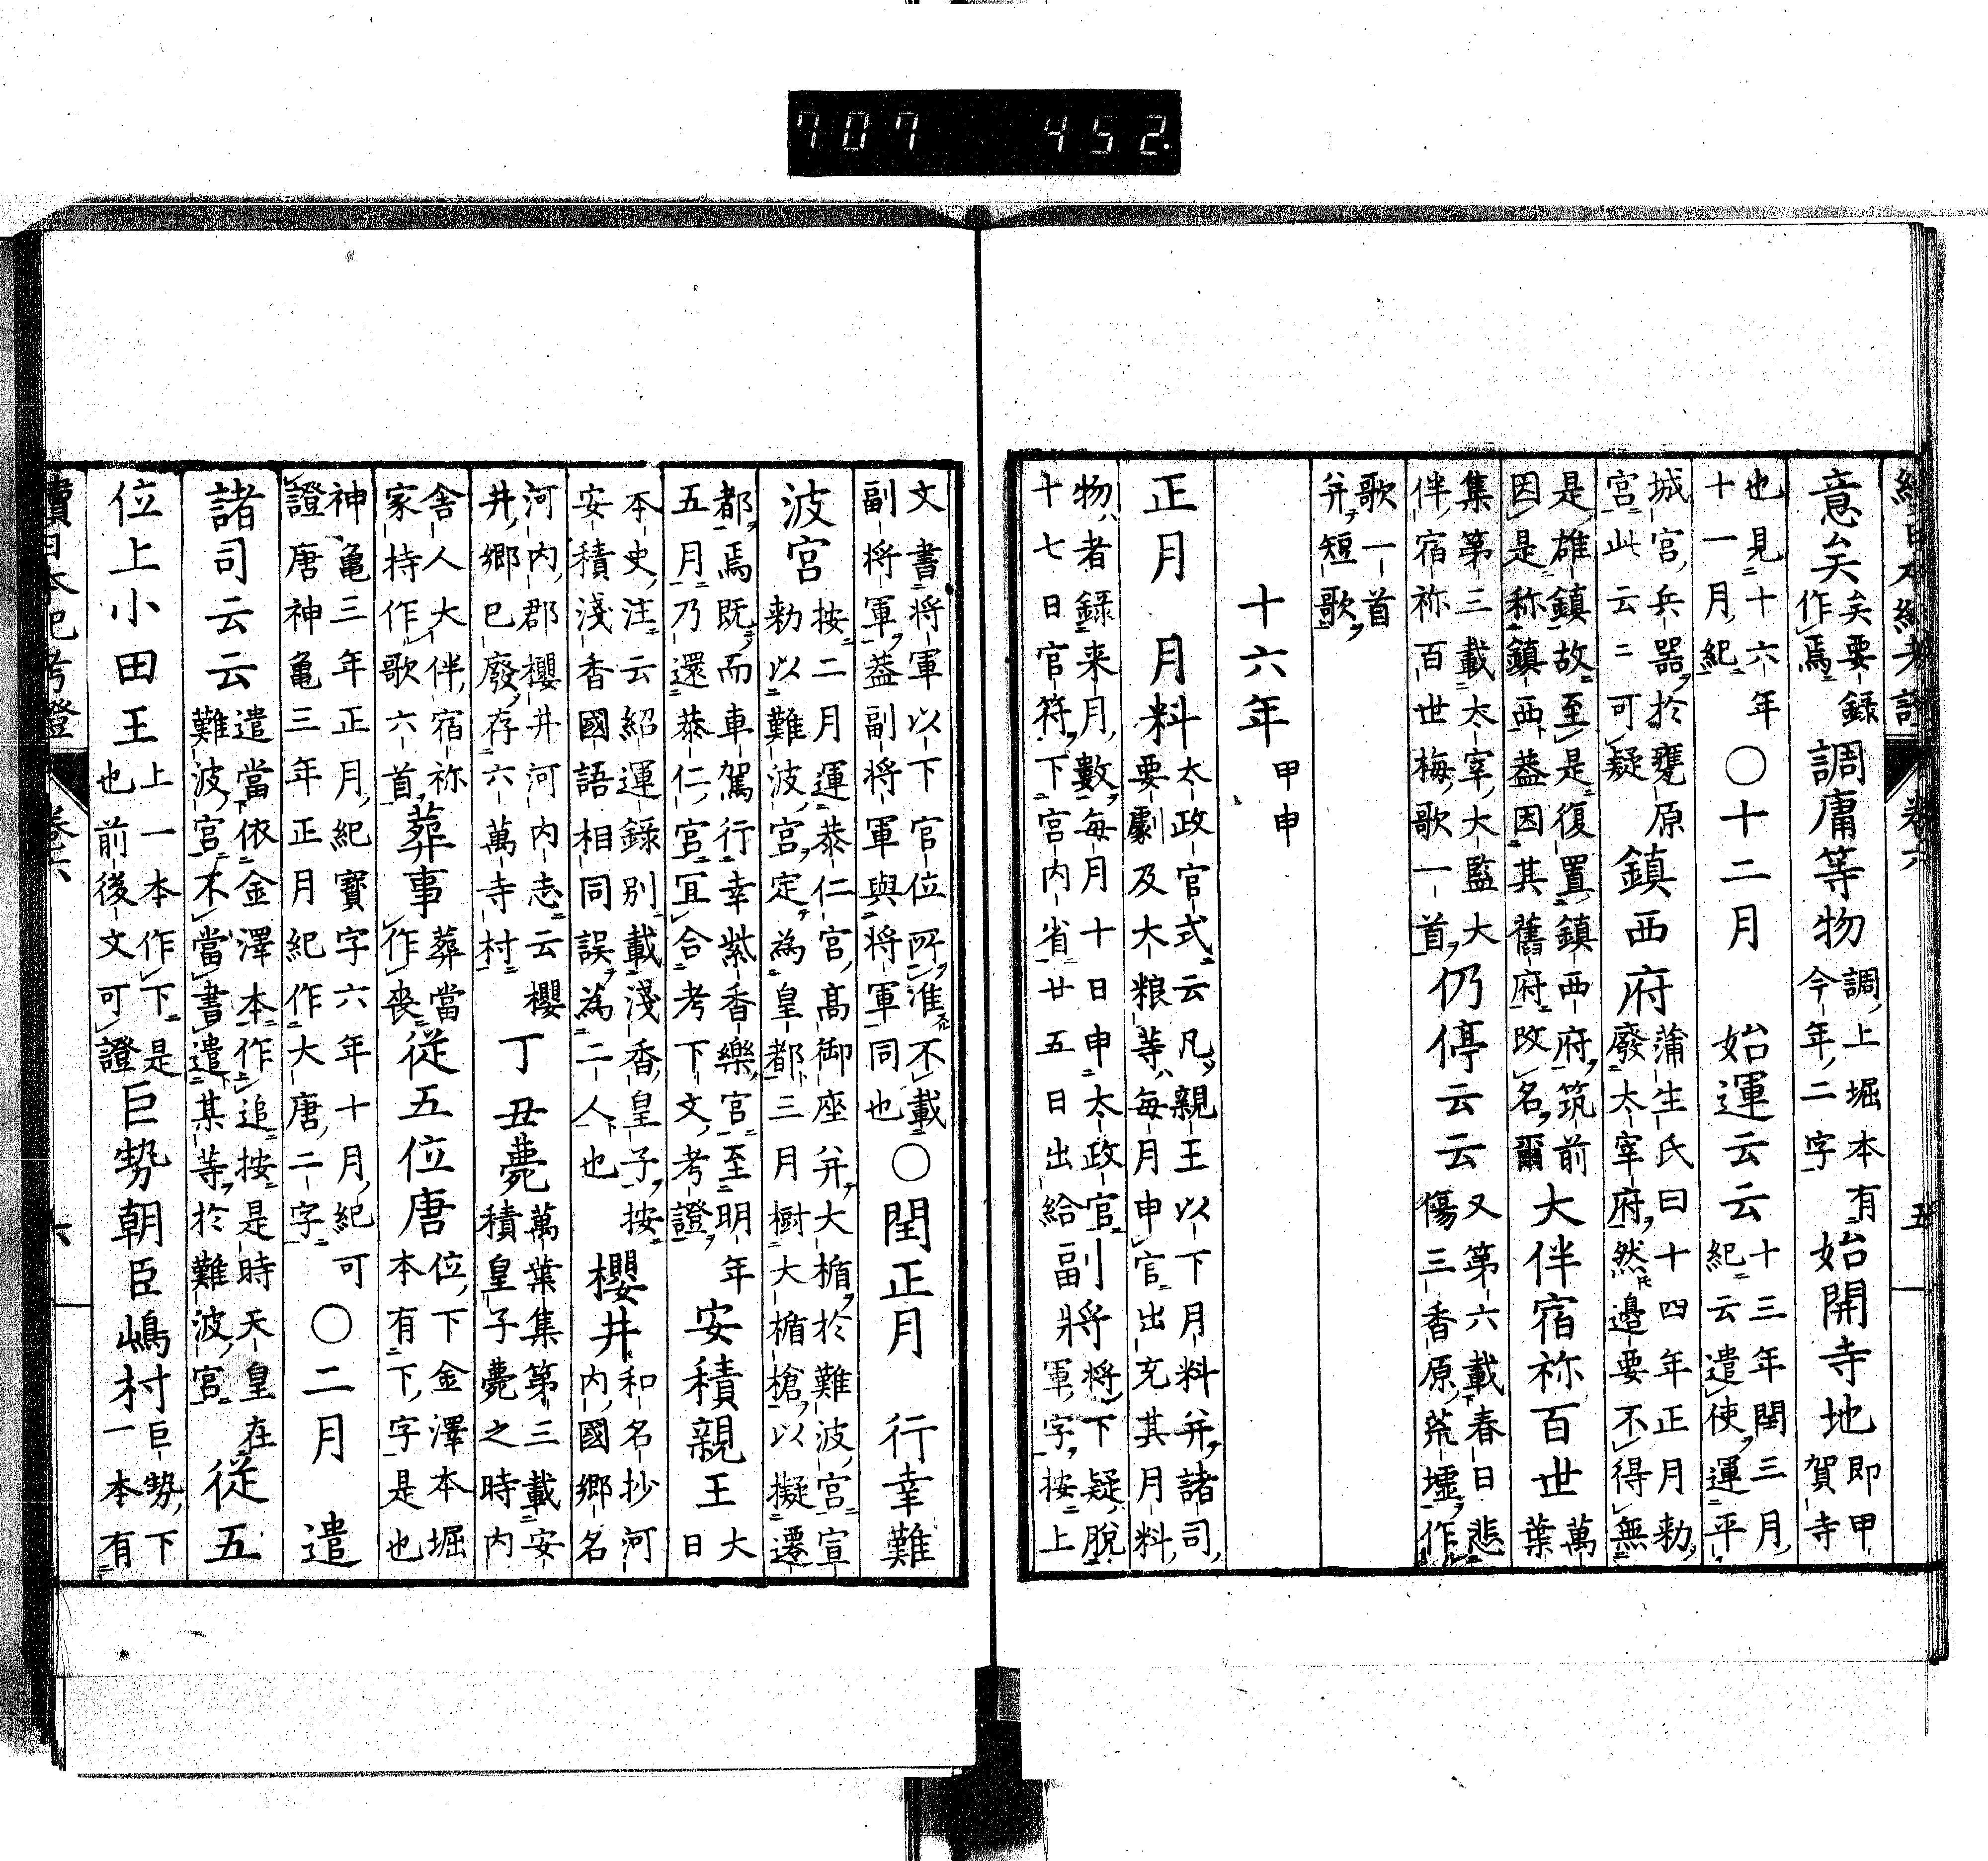 707 452.
續日本紀考證 卷六 五
意矣矣要錄作焉調庸等物調上堀本有今年二字始開寺地即甲賀寺
也見十六年十一月紀〇十二月 始運云云十三年閏三月紀云遣使運平
城宮兵器於甕原宮此云云可疑鎮西府蒲生氏曰十四年正月勅廢太宰府然邊要不得無
是雄鎮故至是復置鎮西府筑前因是称鎮西蓋因其舊府改名爾大伴宿祢百世萬葉
集第三載太宰大監大伴宿祢百世梅歌一首仍停云云又第六載春日悲傷三香原荒墟作
歌一首并短歌
十六年甲申
正月 月料太政官式云凡親王以下月料并諸司要劇及大粮等每月申官出充其月料
物者錄来月數每月十日申太政官十七日官符下宮内省廿五日出給副將將下疑脫軍字按上
文書将軍以下官位所准不載副将軍蓋副将軍與将軍同也〇閏正月 行幸難
波宮按二月運恭仁宮高御座并大楯於難波宮宣勅以難波宮定為皇都三月樹大楯槍以擬遷
都焉既而車駕行幸紫香樂宮至明年五月乃還恭仁宮宜合考下文考證安積親王大日
本史注云紹運錄別載淺香皇子按安積淺香國語相同誤為二人也櫻井和名抄河内國郷名
河内郡櫻井河内志云櫻井郷已廢存六萬寺村 丁丑薨萬葉集第三載安積皇子薨之時内
舎人大伴宿祢家持作歌六首葬事葬當作喪從五位唐位下金澤本堀本有下字是也
神亀三年正月紀寶字六年十月紀可證唐神亀三年正月紀作大唐二字〇二月 遣
諸司云云遣當依金澤本作追按是時天皇在難波宮不當書遣某等於難波宮從五
位上小田王上一本作下是也前後文可證巨勢朝臣嶋村巨勢下一本有
續日本紀考證 卷六 六